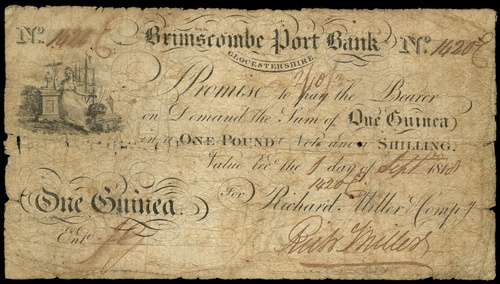 No. 1420 Brimscombe Port Bank No. 1420
GLOCESTERSHIRE.
Promise to pay the Bearer
on Demand the Sum of One Guinea
in a ONE POUND Note and a SHILLING.
Value Recd. the 1 day of Septr 181
1420
One Guinea. For Richard Miller Compy.
Entd.
Richd Miller